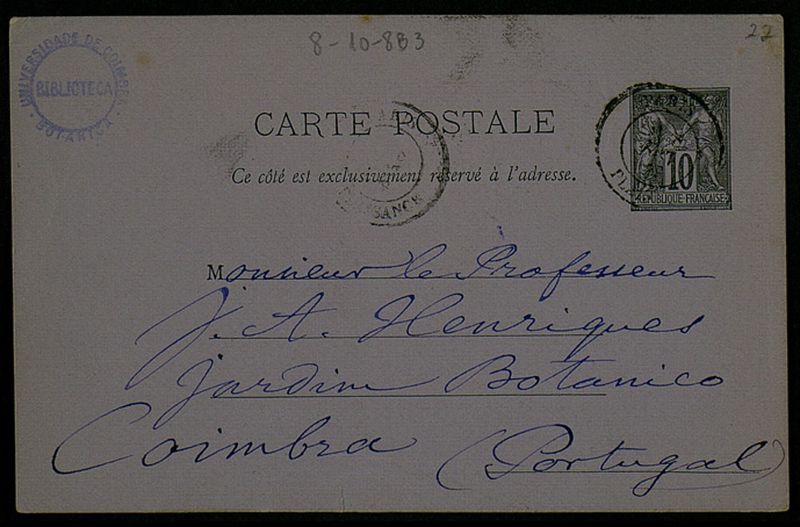 8-10-883
22
UNIVERSIDADE DE COIMBRA
BIBLIOTECA
BOTANICA
CARTE POSTALE
Ce côté est exclusivement réservé à l'adresse.
PARIS
10
REPUBLIQUE FRANÇAISE
Monsieur le Professeur
J. A. Henriques
Jardim Botanico
Coimbra (Portugal)